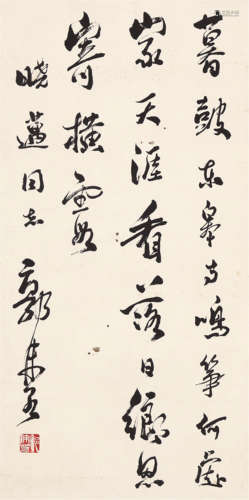 暮鼓东皋寺鸣筝何處
家天涯看落日鄉思
寄横霞
曉邁同志 郭沫若